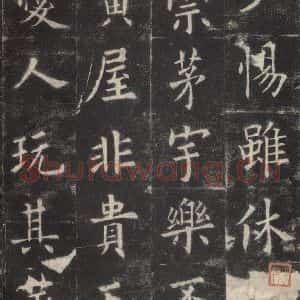 惕雖休
崇茅宇樂不
黃屋非貴
憂人玩其華
Shufawang.Cn